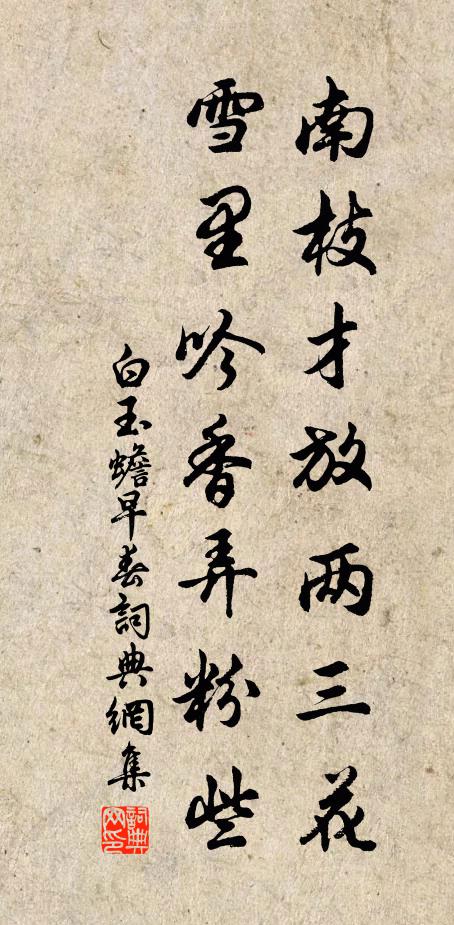 南枝才放两三花
雪里吟香弄粉些
白玉蟾早春詞典網集
詞典网印